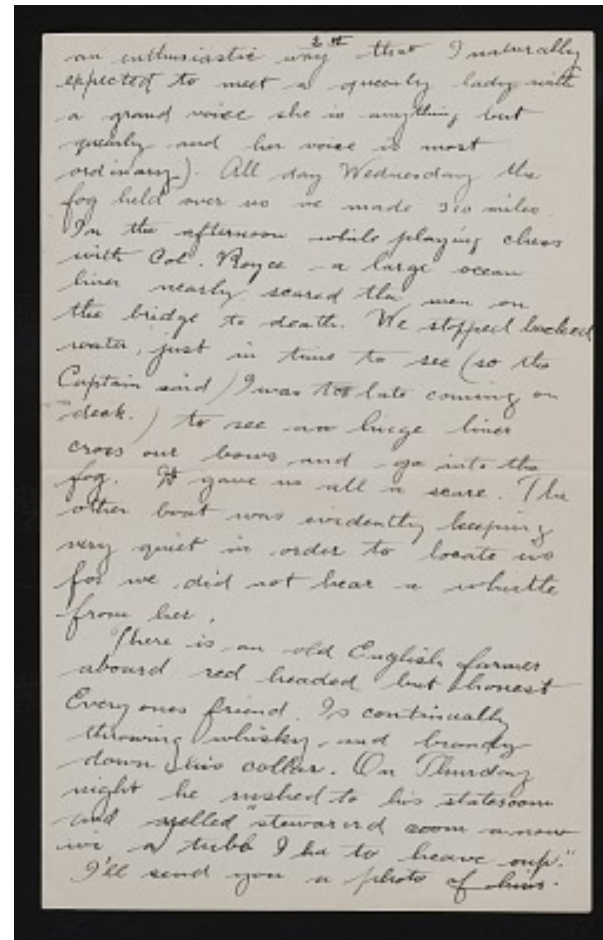 2nd
an enthusiastic way that I naturally
expected to meet a queenly lady with
a grand voice she is anything but
queenly and her voice is most
ordinary). All day Wednesday the
fog held over us we made 310 miles.
In the afternoon while playing chess
with Col. Royce - a large ocean
liner nearly scared the men on
the bridge to death. We stopped backed
water, just in time to see (so the
Captain said) I was too late coming on
deck.) to see a huge liner
cross our bows and go into the
fog. It gave us all a scare. The
other boat was evidently keeping
very quiet in order to locate us
for we did not hear a whistle
from her.
There is an old English farmer
aboard red headed but honest
Everyones friend. Is continually
throwing whisky and brandy
down his collar. On Thursday
night he rushed to his stateroom
and yelled "steward coom
wi a tubb I ha to heave oup."
I'll send you a photo of him.